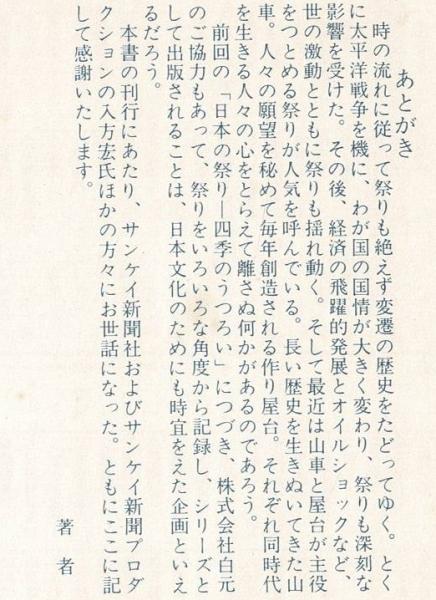 あとがき
時の流れに従って祭りも絶えず変遷の歴史をたどってゆく。とく
に太平洋戦争を機に、わが国の国情が大きく変わり、祭りも深刻な
影響を受けた。その後、経済の飛躍的発展とオイルショックなど、
世の激動とともに祭りも揺れ動く。そして最近は山車と屋台が主役
をつとめる祭りが人気を呼んでいる。長い歴史を生きぬいてきた山
車。人々の願望を秘めて毎年創造される作り屋台。それぞれ同時代
を生きる人々の心をとらえて離さぬ何かがあるのであろう。
前回の「日本の祭り―四季のうつろい」につづき、株式会社白元
のご協力もあって、祭りをいろいろな角度から記録し、シリーズと
して出版されることは、日本文化のためにも時宜をえた企画といえ
るだろう。
本書の刊行にあたり、サンケイ新聞社およびサンケイ新聞プロダ
クションの入方宏氏ほかの方々にお世話になった。ともにここに記
して感謝いたします。
著者